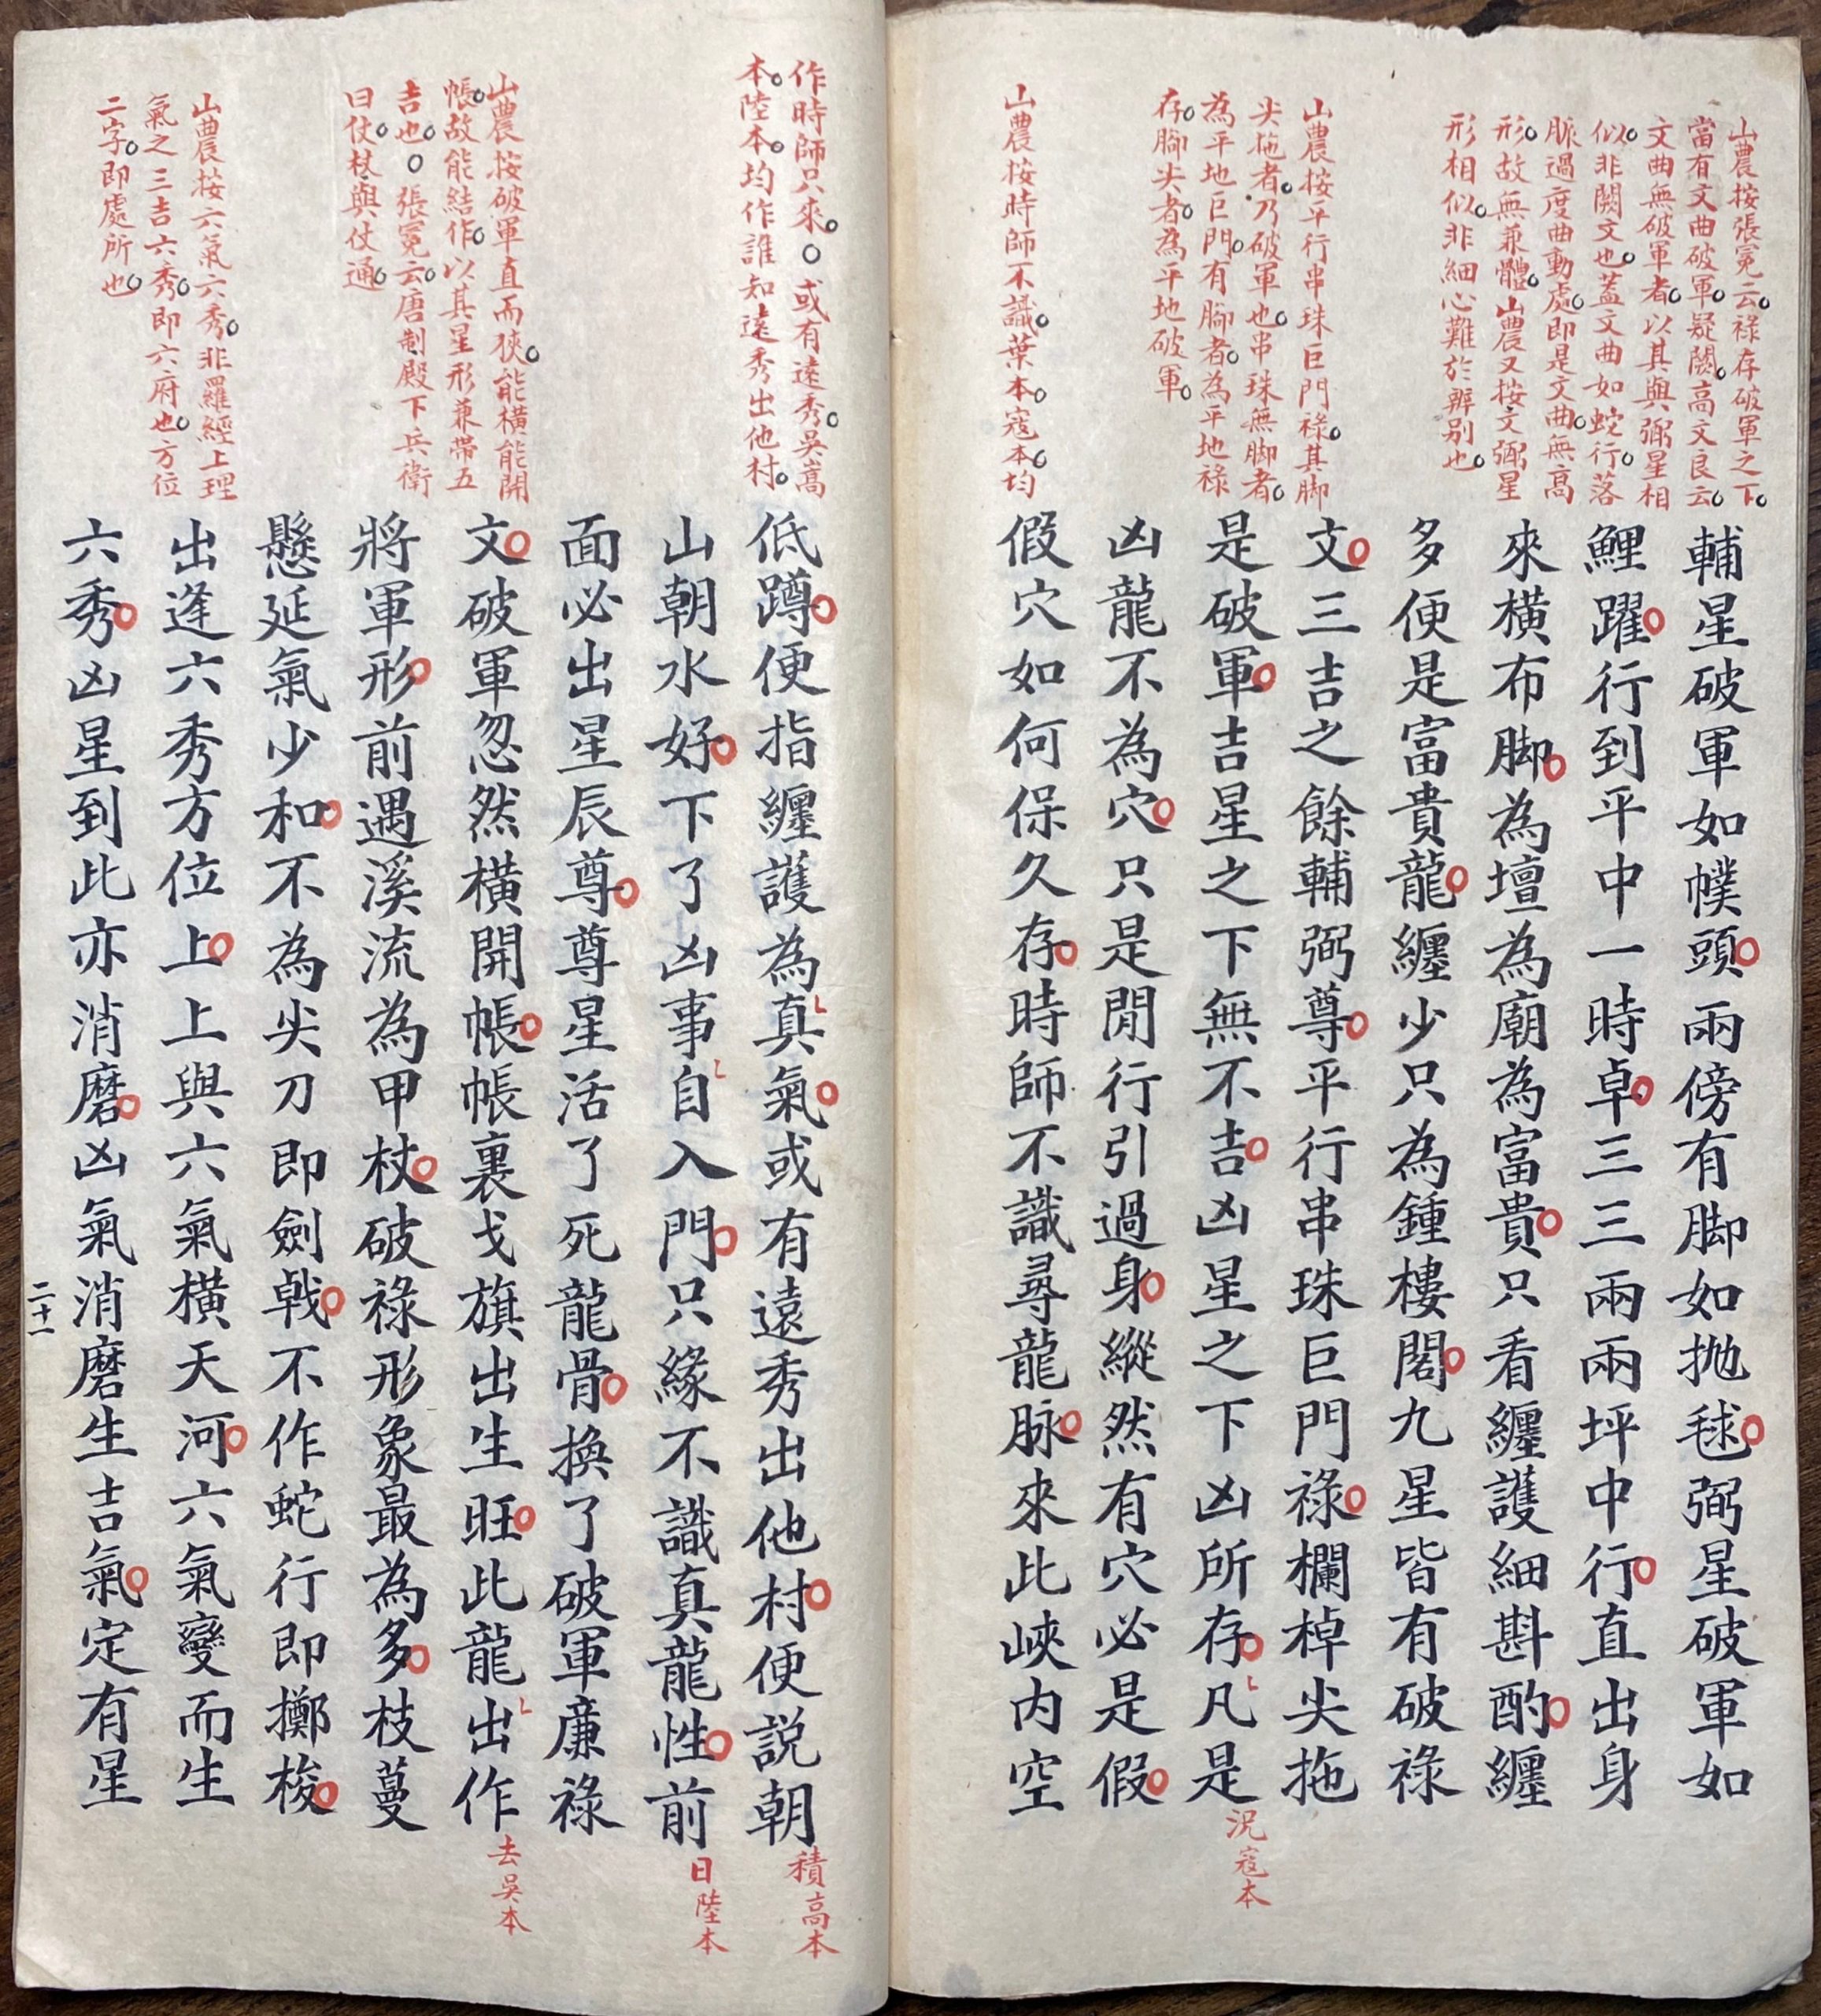 山農按張冕云祿存破軍之下
當有文曲破軍疑闕高文良云
文曲無破軍者以其與弼星相
似非闕文也蓋文曲如蛇行落
脈過度曲動處即是文曲無高
形故無兼體山農又按文弼星
形相似非細心難於辨别也
山農按平行串珠巨門祿其脚
尖拖者乃破軍也串珠無脚者
為平地巨門有脚者為平地祿
存脚尖者為平地破軍
山農按時師不識葉本寇本均
輔星破軍如幞頭兩傍有脚如抛毬弼星破軍如
鯉躍行到平中一時卓三三兩兩坪中行直出身
來橫布脚為壇為廟為富貴只看纏護細斟酌纏
多便是富貴龍纏少只為鍾樓閣九星皆有破祿
文三吉之餘輔弼尊平行串珠巨門祿欄棹尖拖
是破軍吉星之下無不吉凶星之下凶所存凡是
況寇本
凶龍不為穴只是閒行引過身縱然有穴必是假
假穴如何保久存時師不識尋龍脉來此峽内空
作時師只來○或有遠秀吳嵩
本陸本均作誰知遠秀出他村
山農按破軍直而狹能橫能開
帳故能結作以其星形兼帶五
吉也○張冕云唐制殿下兵衛
曰仗杖與仗通
山農按六氣六秀非羅經上理
氣之三吉六秀即六府也方位
二字即處所也
低蹲便指纏護為真氣或有遠秀出他村便説朝
積高本
山朝水好下了凶事自入門只緣不識真龍性前
日陸本
面必出星辰尊尊星活了死龍骨換了破軍廉祿
文破軍忽然橫開帳帳裏戈旗出生旺此龍出作
去吳本
將軍形前遇溪流為甲杖破祿形象最為多枝蔓
懸延氣少和不為尖刀即劍戟不作蛇行即擲梭
出逢六秀方位上上與六氣橫天河六氣變而生
六秀凶星到此亦消磨凶氣消磨生吉氣定有星
二十一